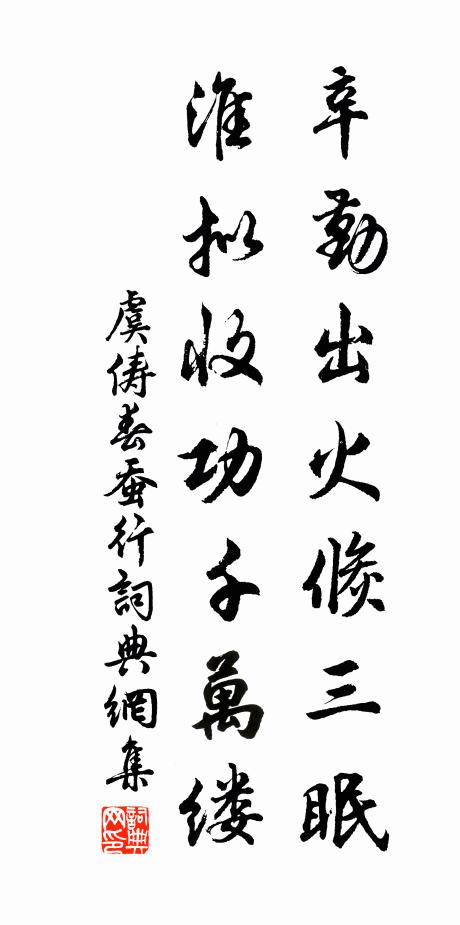 辛勤出火候三眠
准拟收功千萬缕
虞俦春蚕行詞典網集
詞典网印